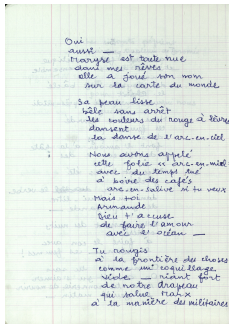 Oui
aussi —
Maryse est toute nue
dans mes rêves
elle a joué son nom
sur la carte du monde
Sa peau lisse
bêle sans arrêt
les couleurs du rouge à lèvres
dansent
la danse de l'arc-en-ciel
Nous avons appelé
cette folie "arc-en-miel
avec du temps
à boire des cafés
arc-en-salive si tu veux
Mais toi
Armande
Dieu t'accuse
de faire l'amour
avec l'océan —
Tu rougis
à la frontière des choses
comme un coquillage
viole — riant fort
de notre drapeau
qui salue Marx
à la manière des militaires